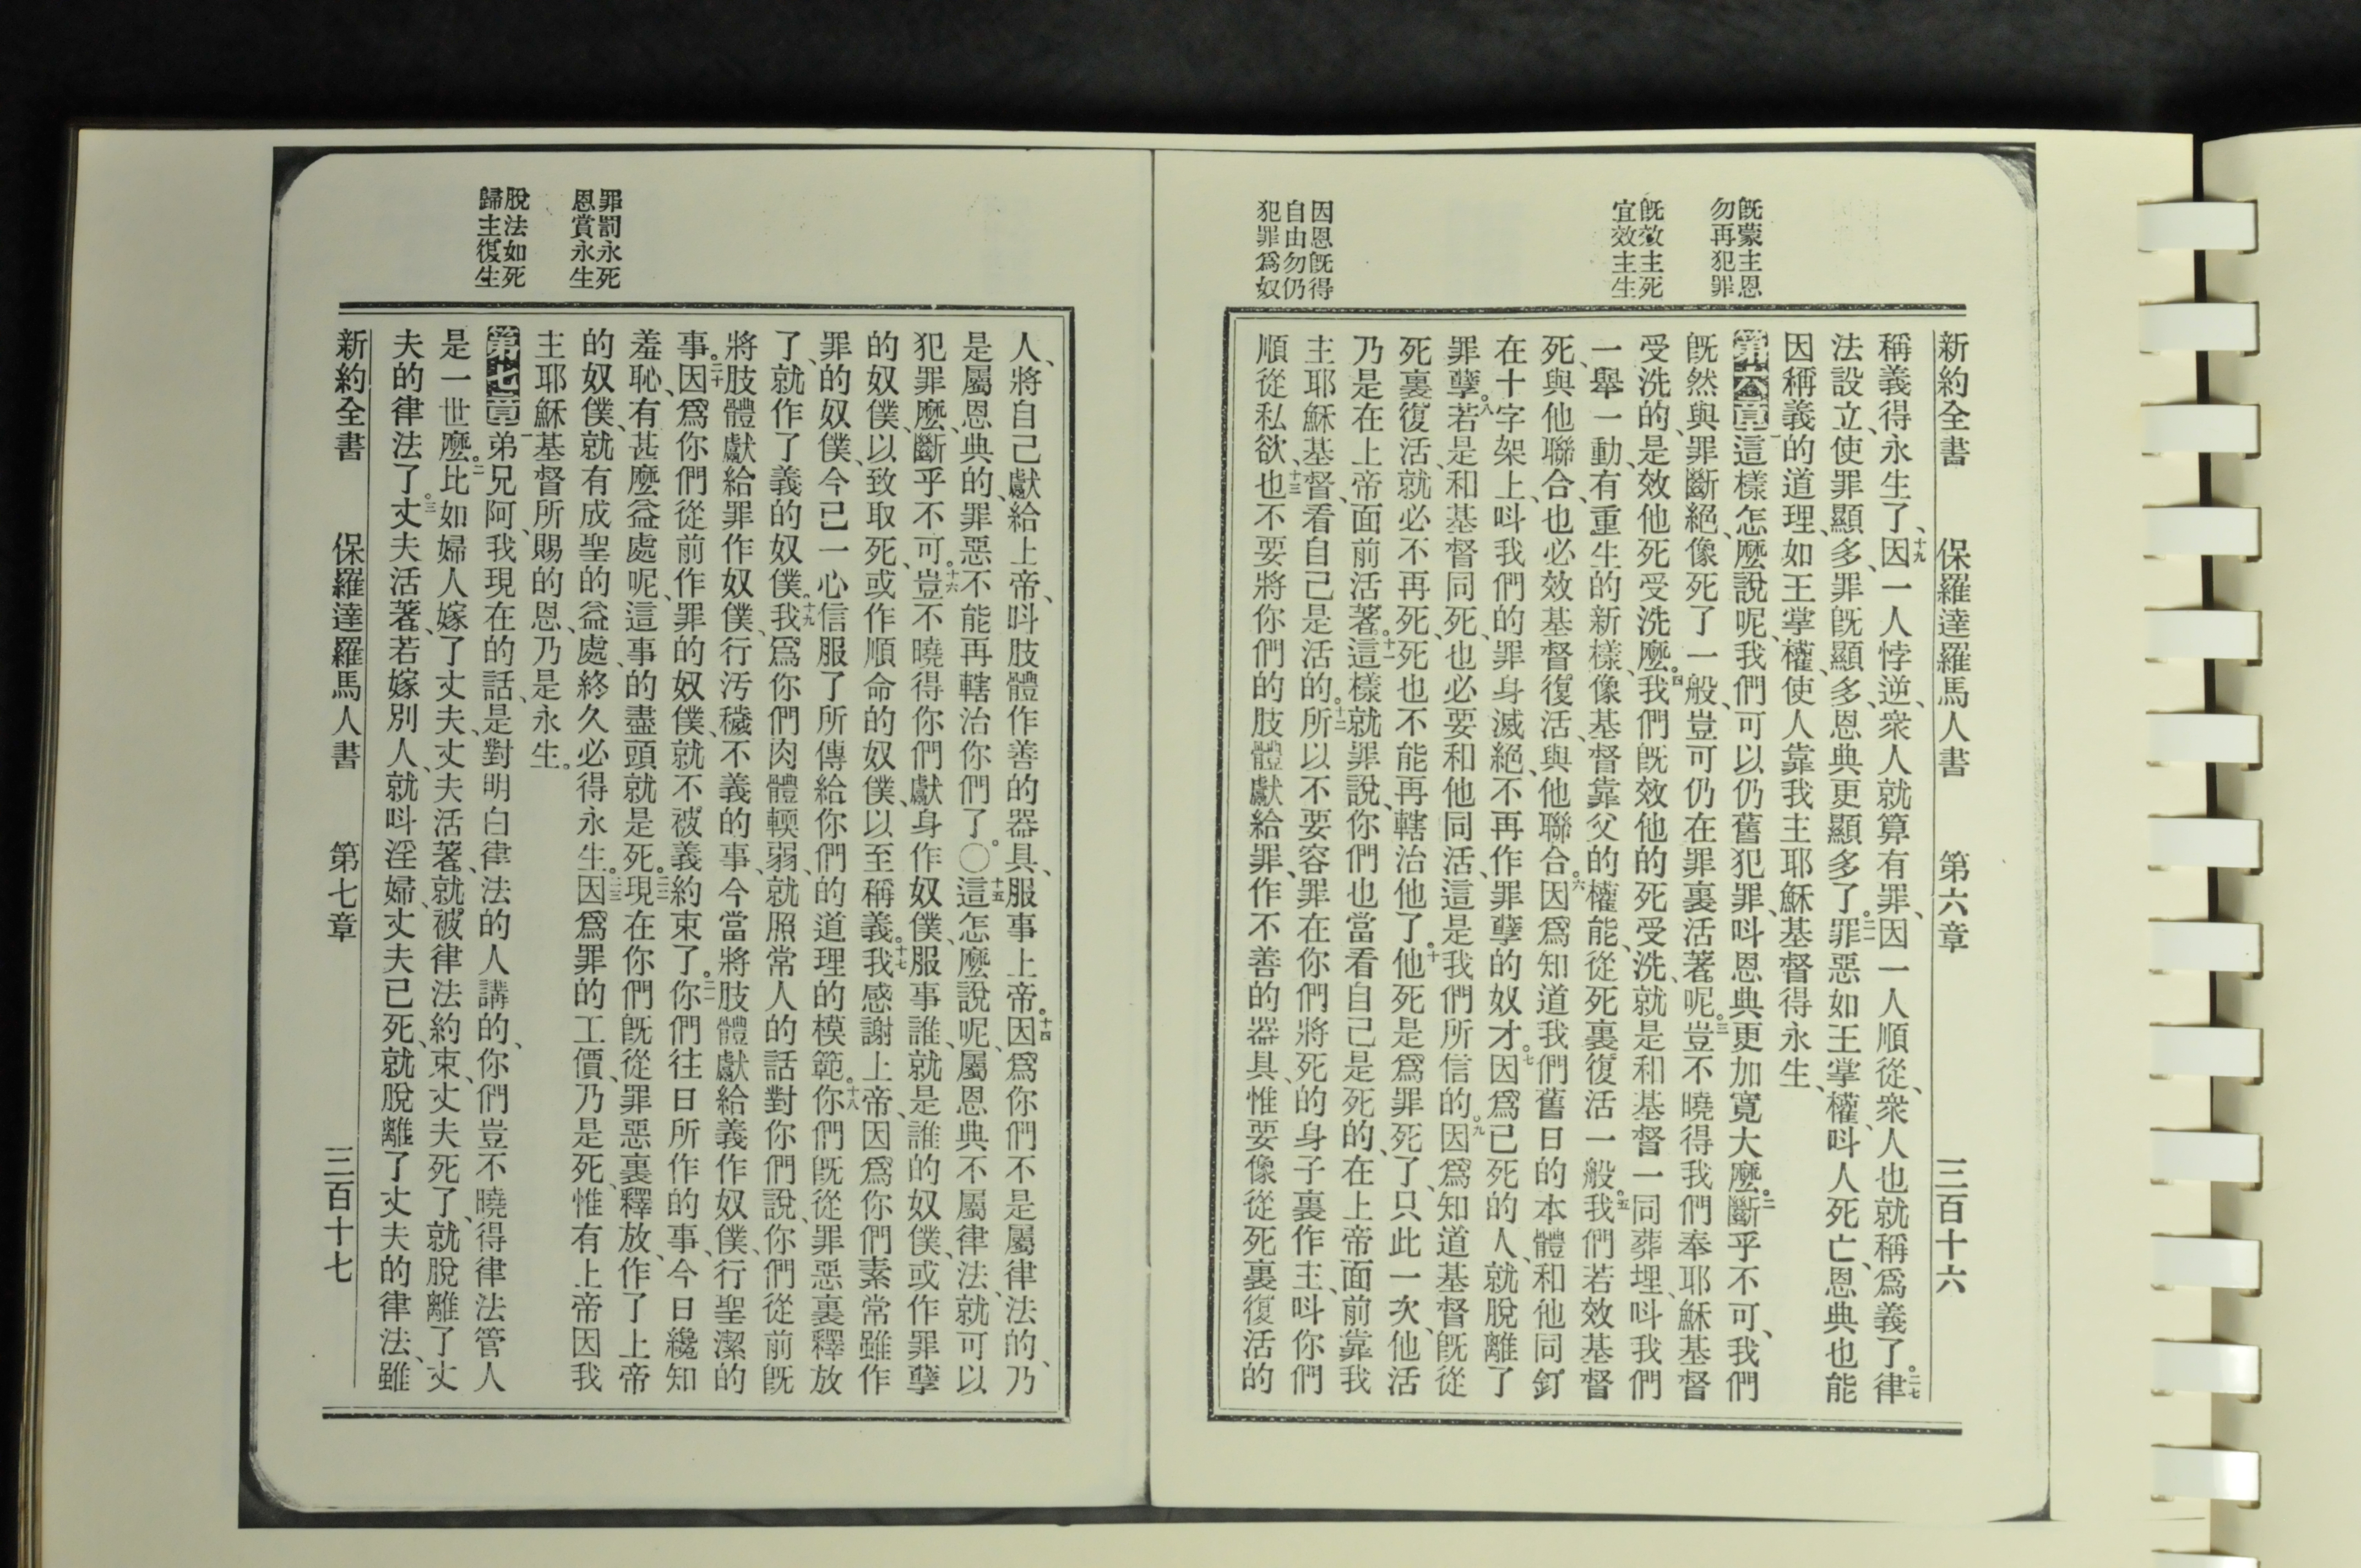 新約全書 保羅達羅馬人書 第六章 三百十六
既蒙主恩
勿再犯罪
既效主死
宜效主生
因恩既得
自由勿仍
犯罪爲奴
稱義得永生了、十九因一人悖逆、衆人就算有罪、因一人順從、衆人也就稱爲義了。二十律
法設立、使罪顯多、罪既顯多、恩典更顯多了。二一罪惡如王掌權、呌人死亡、恩典也能
因稱義的道理、如王掌權、使人靠我主耶穌基督得永生、
第六章一這樣怎麽說呢、我們可以仍舊犯罪、呌恩典更加寬大麽。二斷乎不可、我們
既然與罪斷絕、像死了一般、豈可仍在罪裏活著呢。三豈不曉得我們奉耶穌基督
受洗的、是效他死受洗麽。四我們既效他的死受洗、就是和基督一同葬埋、呌我們
一舉一動、有重生的新樣、像基督靠父的權能、從死裏復活一般。五我們若效基督
死、與他聯合、也必效基督復活、與他聯合。六因爲知道我們舊日的本體、和他同釘
在十字架上、呌我們的罪身滅絕、不再作罪孽的奴才。七因爲已死的人、就脫離了
罪孽。八若是和基督同死、也必要和他同活、這是我們所信的。九因爲知道基督既從
死裏復活、就必不再死、死也不能再轄治他了。十他死是爲罪死了、只此一次、他活
乃是在上帝面前活著。十一這樣就罪說、你們也當看自己是死的、在上帝面前靠我
主耶穌基督、看自己是活的。十二所以不要容罪在你們將死的身子裏作主、呌你們
順從私欲、十三也不要將你們的肢體獻給罪、作不善的器具、惟要像從死裏復活的
罪罰永死
恩賞永生
脫法如死
歸主復生
人、將自己獻給上帝、呌肢體作善的器具、服事上帝。十四因爲你們不是屬律法的、乃
是屬恩典的、罪惡不能再轄治你們了。〇十五這怎麽說呢、屬恩典不屬律法、就可以
犯罪麽、斷乎不可。十六豈不曉得你們獻身作奴僕、服事誰、就是誰的奴僕、或作罪孽
的奴僕、以致取死、或作順命的奴僕、以至稱義。十七我感謝上帝、因爲你們素常雖作
罪的奴僕、今已一心信服了所傳給你們的道理的模範。十八你們既從罪惡裏釋放
了、就作了義的奴僕。十九我爲你們肉體輭弱、就照常人的話對你們說、你們從前既
將肢體獻給罪作奴僕、行汚穢不義的事、今當將肢體獻給義作奴僕、行聖潔的
事。二十因爲你們從前作罪的奴僕、就不被義約束了。二一你們往日所作的事、今日纔知
羞恥、有甚麽益處呢、這事的盡頭就是死。二二現在你們既從罪惡裏釋放、作了上帝
的奴僕、就有成聖的益處、終久必得永生。二三因爲罪的工價、乃是死、惟有上帝因我
主耶穌基督所賜的恩、乃是永生。
第七章一弟兄阿、我現在的話、是對明白律法的人講的、你們豈不曉得律法管人
是一世麽。二比如婦人嫁了丈夫、丈夫活著、就被律法約束、丈夫死了、就脫離了丈
夫的律法了。三丈夫活著、若嫁別人、就呌淫婦、丈夫已死、就脫離了丈夫的律法、雖
新約全書 保羅達羅馬人書 第七章 三百十七